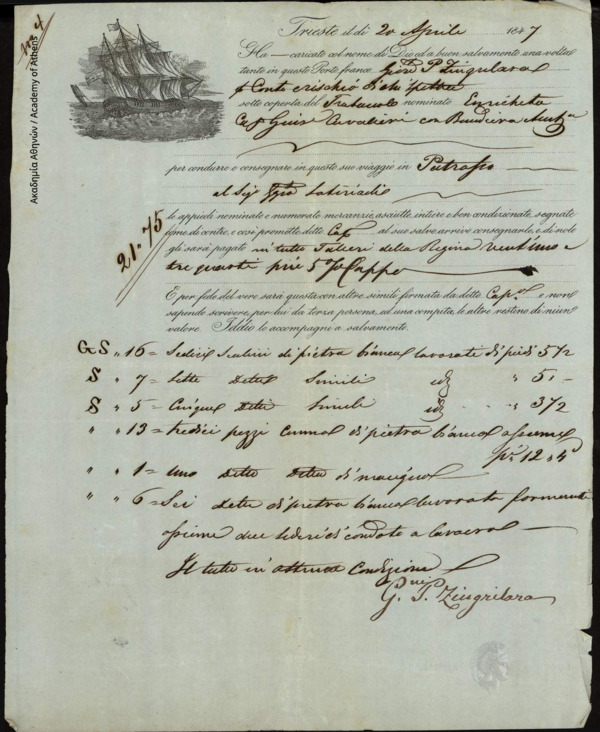 Trieste il dì 20 Aprile 1847
Ha caricato col nome di Dio ed a buon salvamento una volta
tanto in questo Porto franco P Zingrilara
Conto e rischio
sotto coperta del Trabacolo nominato Enricheta
Cap Cavalieri con Bandiera
per condurre e consegnare in questo suo viaggio in Patrasso
al Sig
le appiedi nominate e numerate mercanzie, asciutte, intiere e ben condizionate, segnate
come di contro, e così promette detto Cap al suo salvo arrivo consegnarle, e di nolo
gli sarà pagato in tutto Talleri della Regina vent'uno e
tre quarti più 5 % Cappa
21.75
E per fede del vero sarà questa con altre simili firmata da detto Cap e non
sapendo scrivere, per lui da terza persona, ed una compita, le altre restino di niun
valore. Iddio lo accompagni a salvamento.
GS " 16 = Sedici Scalini di pietra bianca lavorati di piedi 5 1/2
S " 7 = Sette Detti Simili " 5 . -
S " 5 = Cinque Detti Simili " 3 1/2
" " 13 = tredici pezzi di pietra bianca assieme
12
" " 1 = uno Detto Detto di
" " 6 = Sei Detti di pietra bianca lavorata formanti
assieme due
Il tutto in ottima Condizione
G. P. Zingrilara
Ακαδημία Αθηνών / Academy of Athens